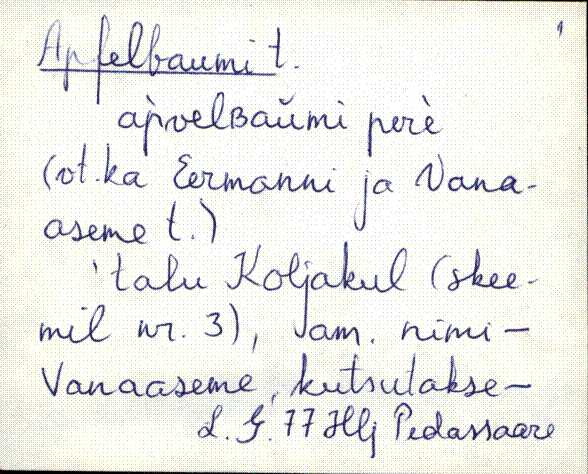 1
Apfelbaumi t.
àpvelʙaŭmi perè
(vt. ka Eermanni ja Vana-
aseme t.)
'talu Koljakul (skee-
mil nr. 3), vam. nimi -
Vanaaseme, kutsutakse -
L. G. 77 Hlj Pedassaare